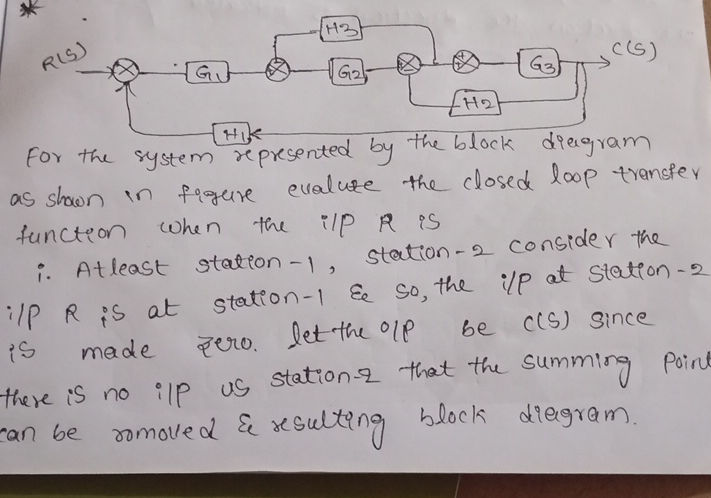 H3
R(S)
G1
G2
G3
C(S)
H2
H1
For the system represented by the block diagram
as shown in figure evalute the closed loop transfer
function when the i/p R is
i. Atleast station-1, station-2 consider the
i/p R is at station-1 & so, the i/p at station-2
is made zero. let the o/p be C(S) since
there is no i/p us station-2 that the summing Point
can be romoved & resulting block diegram.